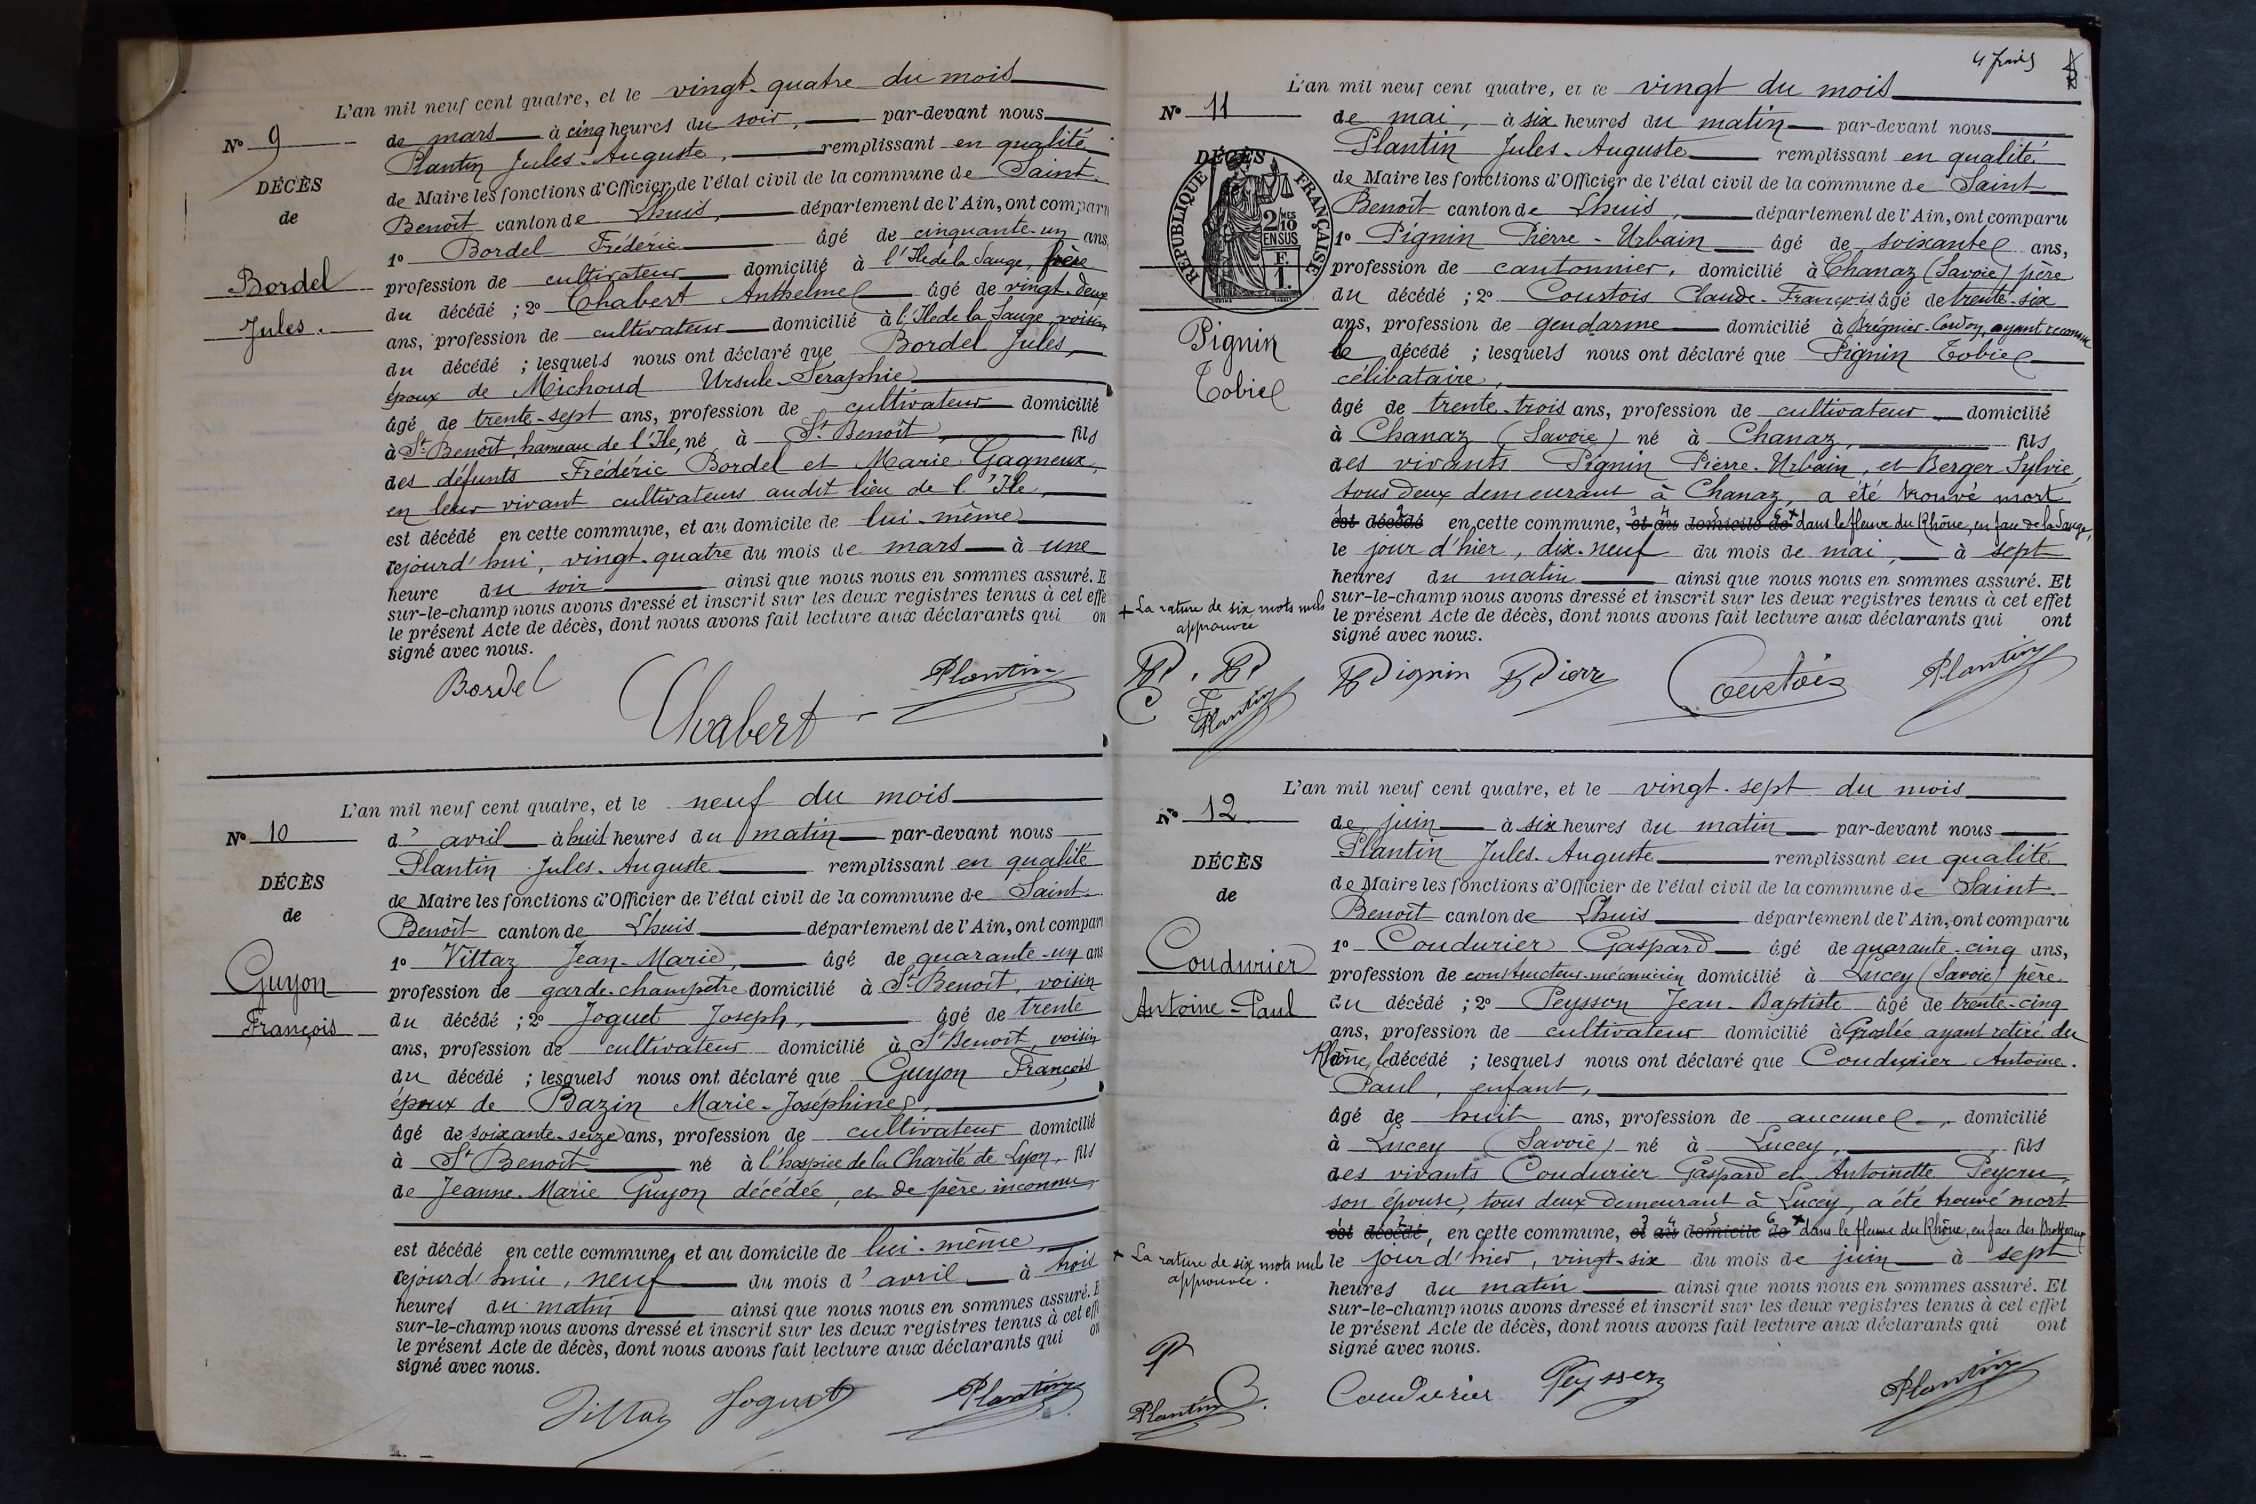 L'an mil neuf cent quatre, et le vingt-quatre du mois
N° 9
de mars à cinq heures du soir, par-devant nous
Plantin Jules-Auguste, remplissant en qualité
DÉCÈS
de Maire les fonctions d'Officier de l'état civil de la commune de Saint-
de
Benoît canton de Lhuis, département de l'Ain, ont comparu
1° Bordel Frédéric âgé de cinquante-un ans,
Bordel
profession de cultivateur domicilié à l'Ile de la Sauge, frère
Jules.
du décédé ; 2° Chabert Anthelme âgé de vingt-deux
ans, profession de cultivateur domicilié à l'Ile de la Sauge voisin
du décédé ; lesquels nous ont déclaré que Bordel Jules,
époux de Michoud Ursule-Séraphie
âgé de trente-sept ans, profession de cultivateur domicilié
à St Benoît, hameau de l'Ile, né à St Benoît, fils
des défunts Frédéric Bordel et Marie Gagneux,
en leur vivant cultivateurs audit lieu de l'Ile,
est décédé en cette commune, et au domicile de lui-même
cejourd'hui, vingt-quatre du mois de mars à une
heure du soir ainsi que nous nous en sommes assuré. E
sur-le-champ nous avons dressé et inscrit sur les deux registres tenus à cet effe
le présent Acte de décès, dont nous avons fait lecture aux déclarants qui on
signé avec nous.
Bordel Chabert Plantin
L'an mil neuf cent quatre, et le neuf du mois
N° 10
d'avril à huit heures du matin par-devant nous
Plantin Jules-Auguste remplissant en qualité
DÉCÈS
de Maire les fonctions d'Officier de l'état civil de la commune de Saint-
de
Benoît canton de Lhuis département de l'Ain, ont comparu
1° Vittaz Jean-Marie, âgé de quarante-un ans
Guyon
profession de garde-champêtre domicilié à St Benoît, voisin
François
du décédé ; 2° Joguet Joseph, âgé de trente
ans, profession de cultivateur domicilié à St Benoît, voisin
du décédé ; lesquels nous ont déclaré que Guyon François
époux de Bazin Marie-Joséphine,
âgé de soixante-seize ans, profession de cultivateur domicilié
à St Benoît né à l'hospice de la Charité de Lyon, fils
de Jeanne-Marie Guyon décédée, et de père inconnu,
est décédé en cette commune, et au domicile de lui-même,
cejourd'hui, neuf du mois d'avril à trois
heures du matin ainsi que nous nous en sommes assuré. E
sur-le-champ nous avons dressé et inscrit sur les deux registres tenus à cet effe
le présent Acte de décès, dont nous avons fait lecture aux déclarants qui on
signé avec nous.
Vittaz Joguet Plantin
L'an mil neuf cent quatre, et le vingt du mois
N° 11
de mai, à six heures du matin par-devant nous
Plantin Jules-Auguste remplissant en qualité
DÉCÈS
RÉPUBLIQUE FRANÇAISE
2/10 MES EN SUS
F. 1.
de Maire les fonctions d'Officier de l'état civil de la commune de Saint
Benoît canton de Lhuis, département de l'Ain, ont comparu
1° Pignin Pierre-Urbain âgé de soixante ans,
profession de cantonnier, domicilié à Chanaz (Savoie) père
du décédé ; 2° Coustois Claude-François âgé de trente-six
ans, profession de gendarme domicilié à Brégnier-Cordon, ayant reconnu
Pignin
Tobie
le décédé ; lesquels nous ont déclaré que Pignin Tobie
célibataire,
âgé de trente-trois ans, profession de cultivateur domicilié
à Chanaz (Savoie) né à Chanaz, fils
des vivants Pignin Pierre-Urbain, et Berger Sylvie
tous deux demeurant à Chanaz, a été trouvé mort
est décédé en cette commune, et au domicile de dans le fleuve du Rhône, en face de la Sauge,
le jour d'hier, dix-neuf du mois de mai, à sept
heures du matin ainsi que nous nous en sommes assuré. Et
sur-le-champ nous avons dressé et inscrit sur les deux registres tenus à cet effet
le présent Acte de décès, dont nous avons fait lecture aux déclarants qui ont
signé avec nous.
+ La rature de six mots nuls
approuvée
P. P
C F
Plantin
Pignin Pierre Coustois Plantin
L'an mil neuf cent quatre, et le vingt-sept du mois
N° 12
de juin à six heures du matin par-devant nous
Plantin Jules-Auguste remplissant en qualité
DÉCÈS
de Maire les fonctions d'Officier de l'état civil de la commune de Saint-
de
Benoît canton de Lhuis département de l'Ain, ont comparu
1° Coudurier Gaspard âgé de quarante-cinq ans,
Coudurier
profession de constructeur-mécanicien domicilié à Lucey (Savoie) père
Antoine-Paul
du décédé ; 2° Peysson Jean-Baptiste âgé de trente-cinq
ans, profession de cultivateur domicilié à Groslée ayant retiré du
Rhône, le décédé ; lesquels nous ont déclaré que Coudurier Antoine-
Paul, enfant,
âgé de huit ans, profession de aucune, domicilié
à Lucey (Savoie) né à Lucey, fils
des vivants Coudurier Gaspard et Antoinette Peycru,
son épouse, tous deux demeurant à Lucey, a été trouvé mort
est décédé, en cette commune, et au domicile de dans le fleuve du Rhône, en face des Brotteaux
+ La rature de six mots nuls
approuvée.
le jour d'hier, vingt-six du mois de juin à sept
heures du matin ainsi que nous nous en sommes assuré. Et
sur-le-champ nous avons dressé et inscrit sur les deux registres tenus à cet effet
le présent Acte de décès, dont nous avons fait lecture aux déclarants qui ont
signé avec nous.
P C.
Plantin
Coudurier Peysson Plantin